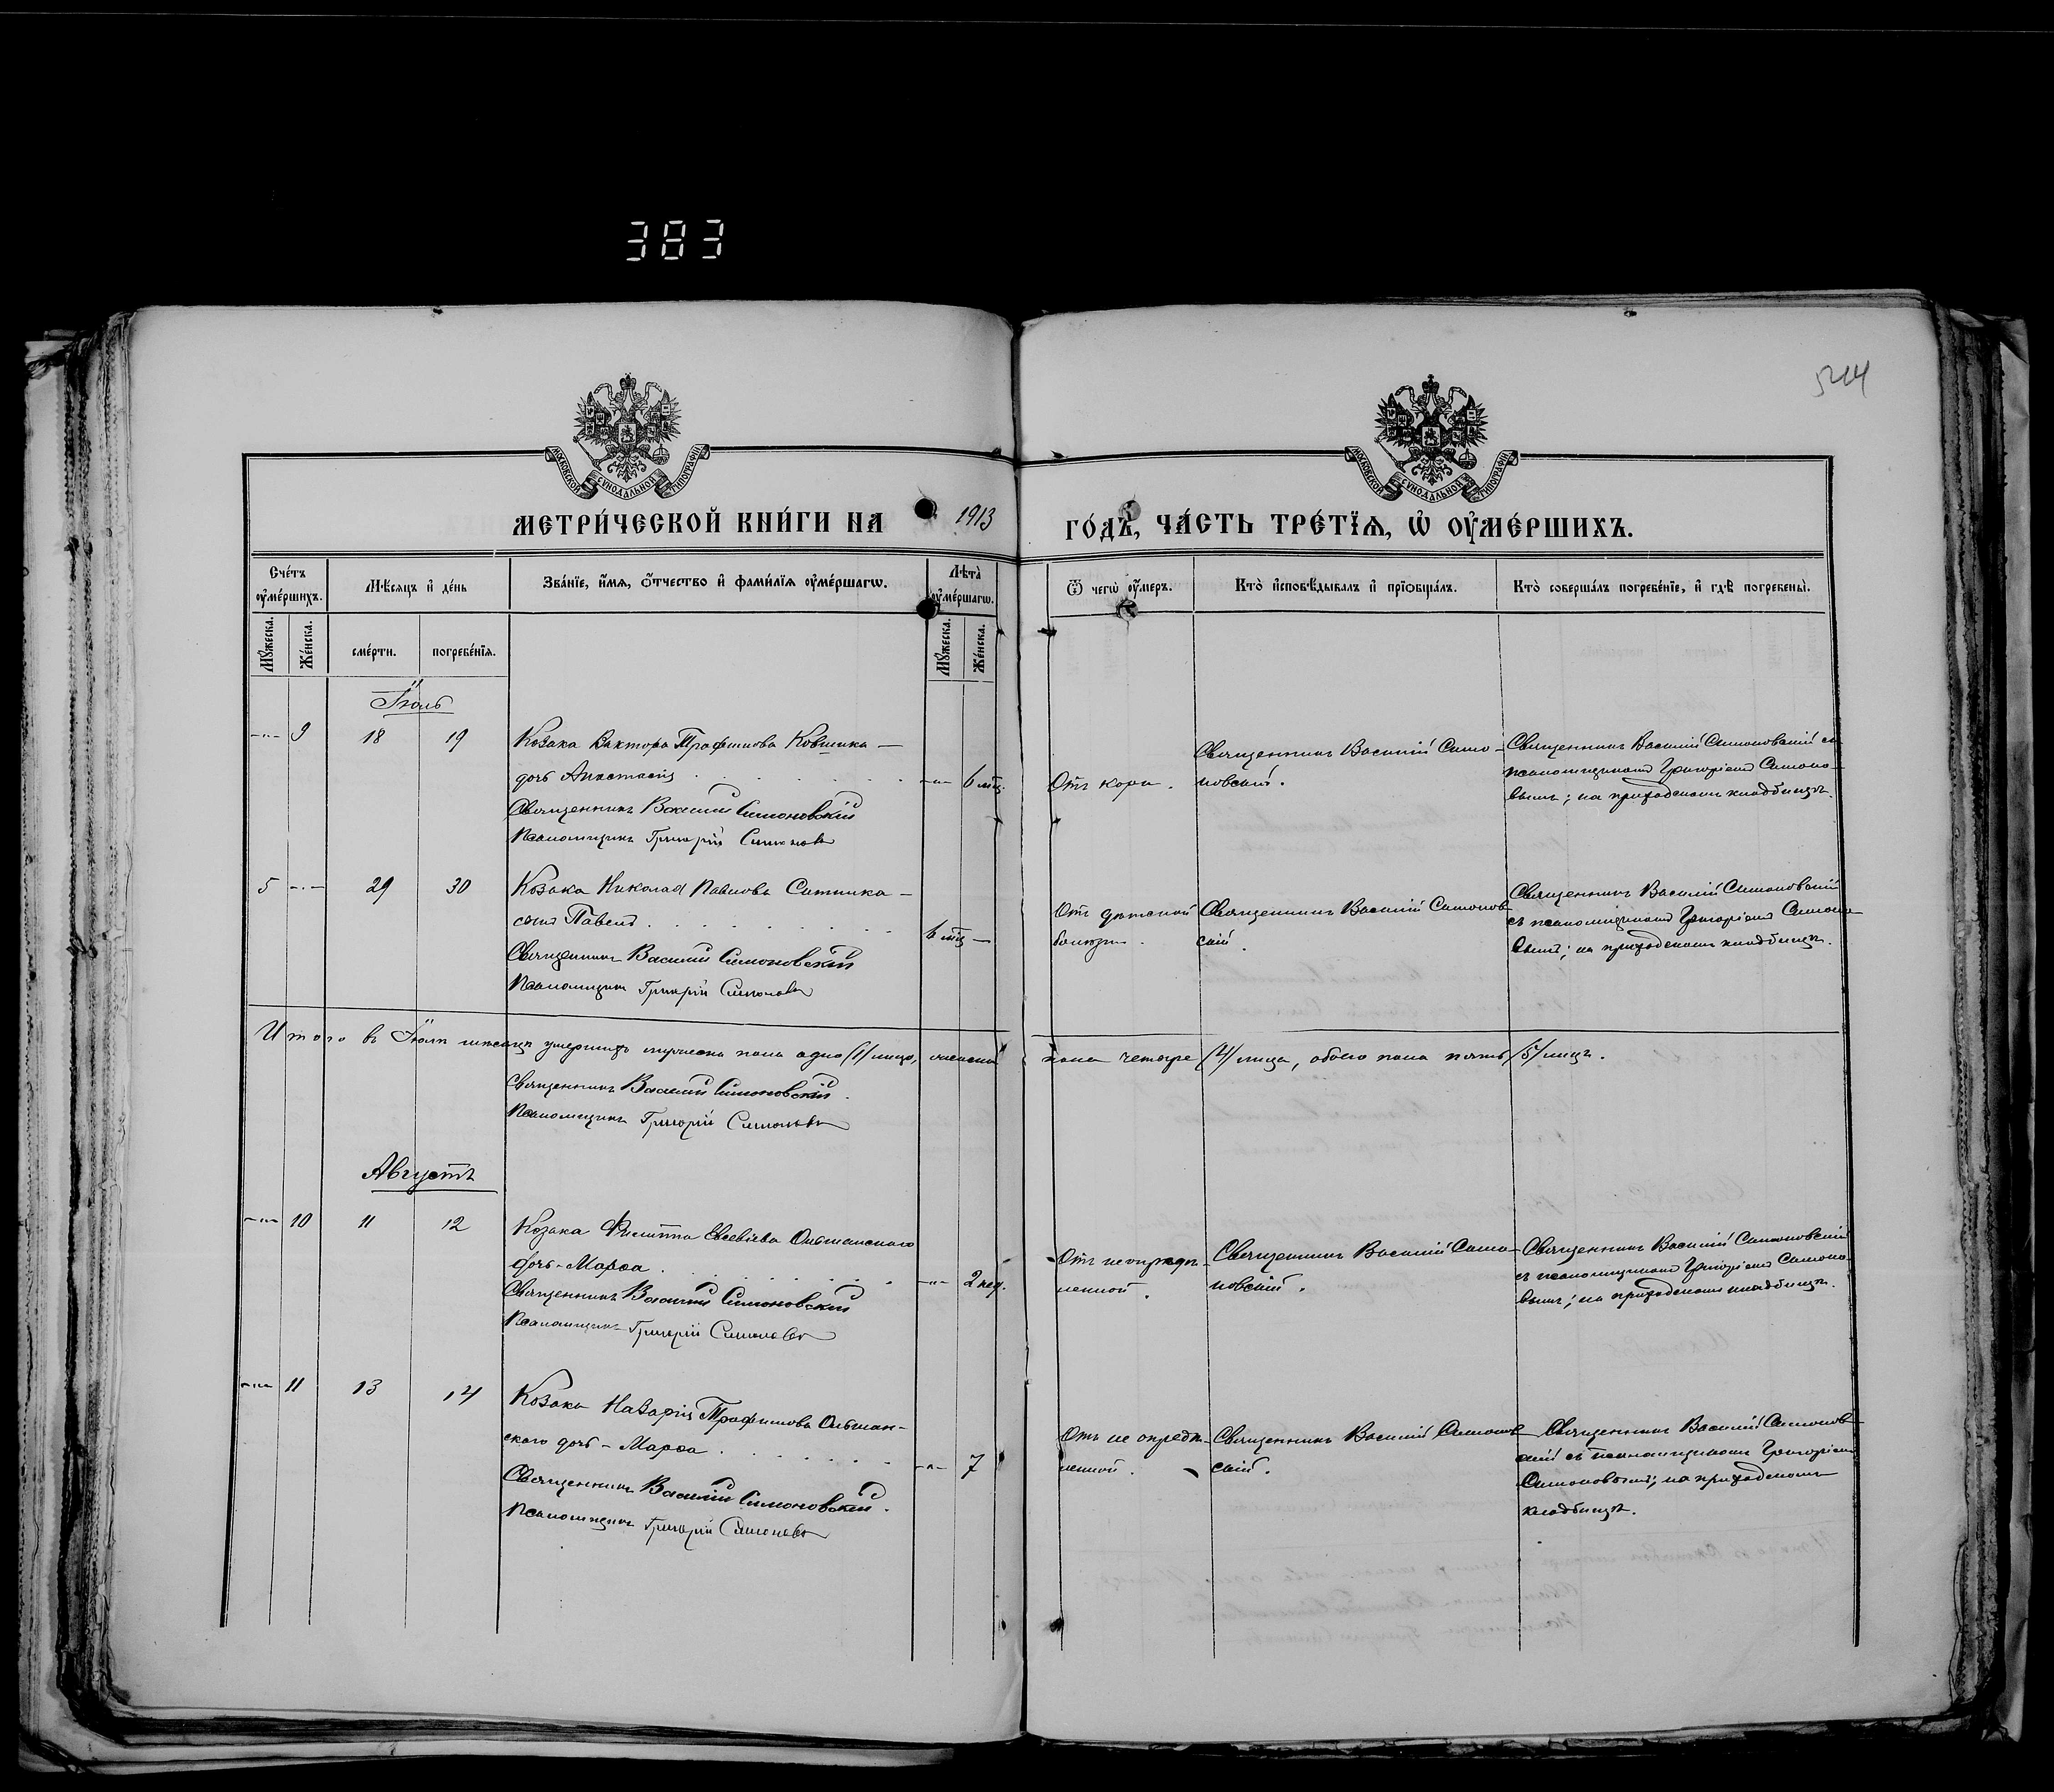 383
544
МОСКОВСКОЙ СѴНОДАЛЬНОЙ ТИПОГРАФІИ
МОСКОВСКОЙ СѴНОДАЛЬНОЙ ТИПОГРАФІИ
МЕТРИ́ЧЕСКОЙ КНИ́ГИ НА 1913 ГО́ДЪ, ЧА́СТЬ ТРЕ́ТЇѦ, Ѡ҆ ОУ҆МЕ́РШИХЪ.
Сче́тъ оу҆ме́ршихъ.
Мѣ́сяцъ и҆ де́нь
Зва́нїе, и҆́мѧ, ѻ҆́тчество и҆ фами́лїѧ оу҆ме́ршагѡ.
Лѣ́та оу҆ме́ршагѡ.
Ѿ чегѡ̀ оу҆́меръ.
Кто̀ и҆сповѣ́дывалъ и҆ прїѡбща́лъ.
Кто̀ соверша́лъ погребе́нїе, и҆ гдѣ̀ погребены̀.
Мꙋ́жеска.
Же́нска.
сме́рти.
погребе́нїѧ.
Мꙋ́жеска.
Же́нска.
Іюль
9 18 19 Козака Виктора Трофимова Ковшика —
дочь Анастасія
6 мц.
Священникъ Василій Симоновскій
Псаломщикъ Григорій Симоновъ
Отъ кори.
Священникъ Василій Симо-
новскій.
Священникъ Василій Симоновскій съ
псаломщикомъ Григоріемъ Симоно-
вымъ; на приходскомъ кладбищѣ.
5 29 30 Козака Николая Павлова Ситника —
сынъ Павелъ
6 мц
Священникъ Василій Симоновскій
Псаломщикъ Григорій Симоновъ
Отъ дѣтской
болѣзни.
Священникъ Василій Симонов-
скій.
Священникъ Василій Симоновскій
съ псаломщикомъ Григоріемъ Симоно-
вымъ; на приходскомъ кладбищѣ.
Итого въ Іюлѣ мѣсяцѣ умершихъ мужеска пола одно /1/ лицо, женска пола четыре /4/ лица, обоего пола пять /5/ лицъ.
Священникъ Василій Симоновскій.
Псаломщикъ Григорій Симоновъ
Августъ
10 11 12 Козака Филиппа Евсевіева Ольшанскаго
дочь - Марѳа
2 нед.
Священникъ Василій Симоновскій
Псаломщикъ Григорій Симоновъ
Отъ неопредѣ-
ленной.
Священникъ Василій Симо-
новскій.
Священникъ Василій Симоновскій
съ псаломщикомъ Григоріемъ Симоно-
вымъ; на приходскомъ кладбищѣ.
11 13 14 Козака Назарія Трофимова Ольшан-
скаго дочь - Марѳа
7
Священникъ Василій Симоновскій.
Псаломщикъ Григорій Симоновъ
Отъ не опредѣ-
ленной.
Священникъ Василій Симонов-
скій.
Священникъ Василій Симонов-
скій съ псаломщикомъ Григоріемъ
Симоновымъ; на приходскомъ
кладбищѣ.